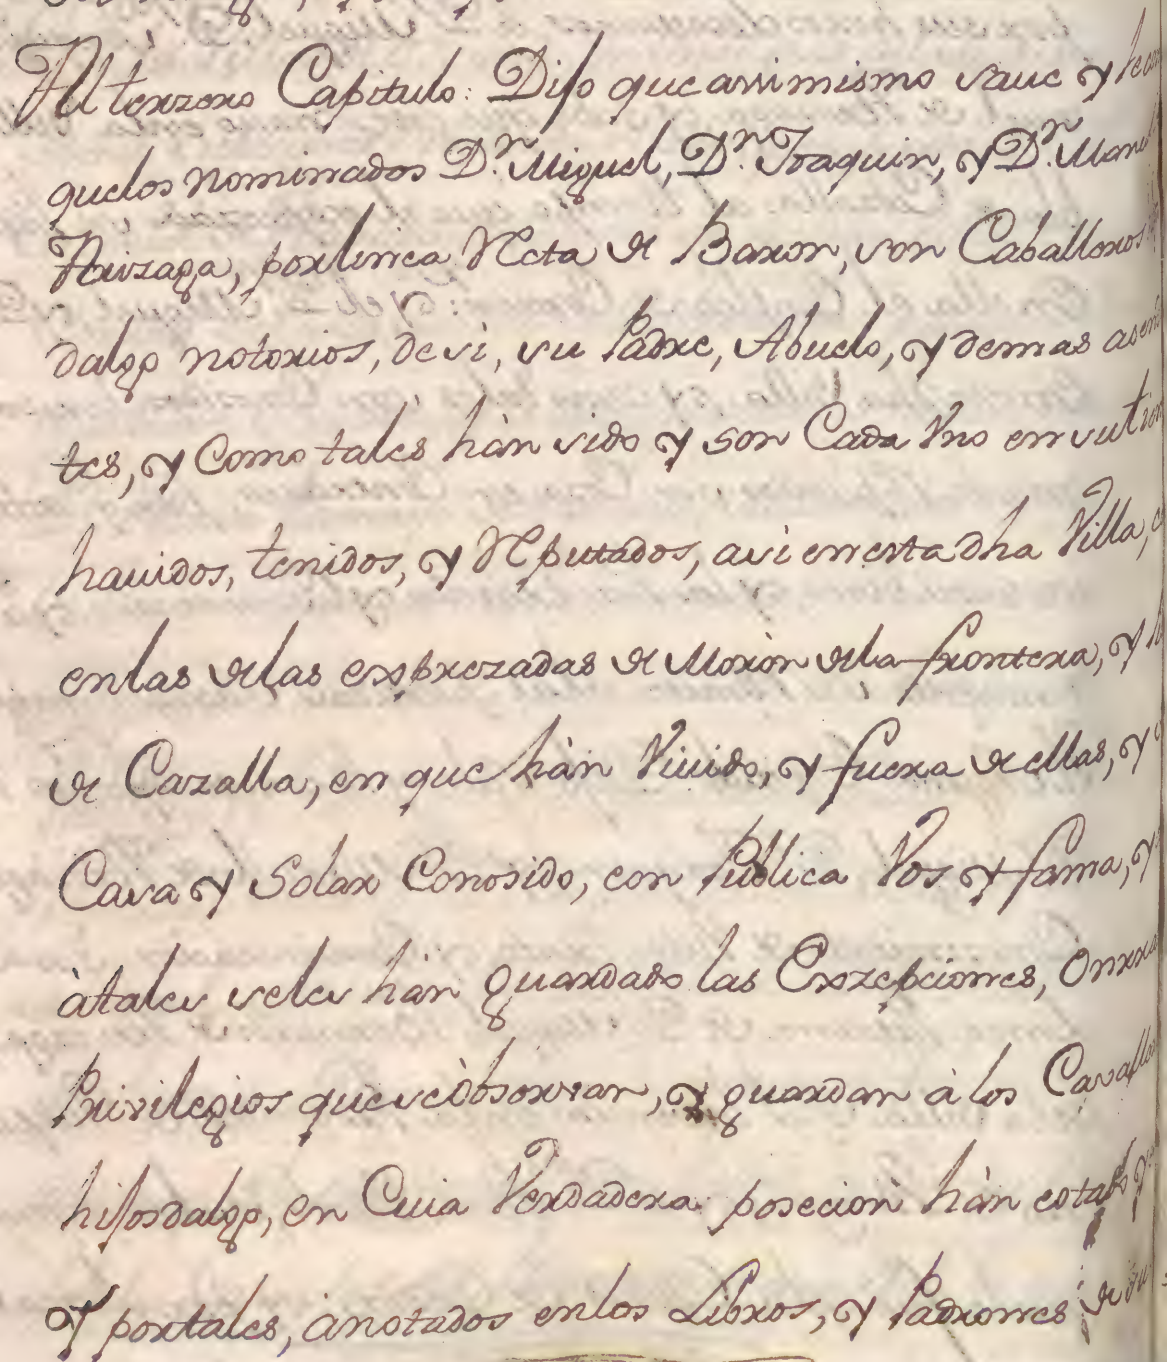 Al terzero Capitulo: Dijo que assimismo save y le co
quelos nominados Dn. Miguel, Dn. Joaquin, y Dn. Manl
Arizaga, por linea Recta de Baron, son Caballeros
dalgo notorios, de si, su Padre, Abuelo, y demas asen
tes, y Como tales hàn sido y son Cada Vno en su tiem
havidos, tenidos, y Reputados, asi en esta dha Villa,
en las de las exprezadas de Moròn de la frontera, y
de Cazalla, en que hàn Vivido, y fuera de ellas, y
Casa y Solar Conosido, con Publica Vos y fama, y
à tales se les hàn guardado las Exzepciones, Onrra
Privilegios que se òbservan, y guardan à los Cavalle
hijosdalgo, en Cuia Verdadera posecion hàn estado
Y por tales, anotados en los Libros, y Padrones de